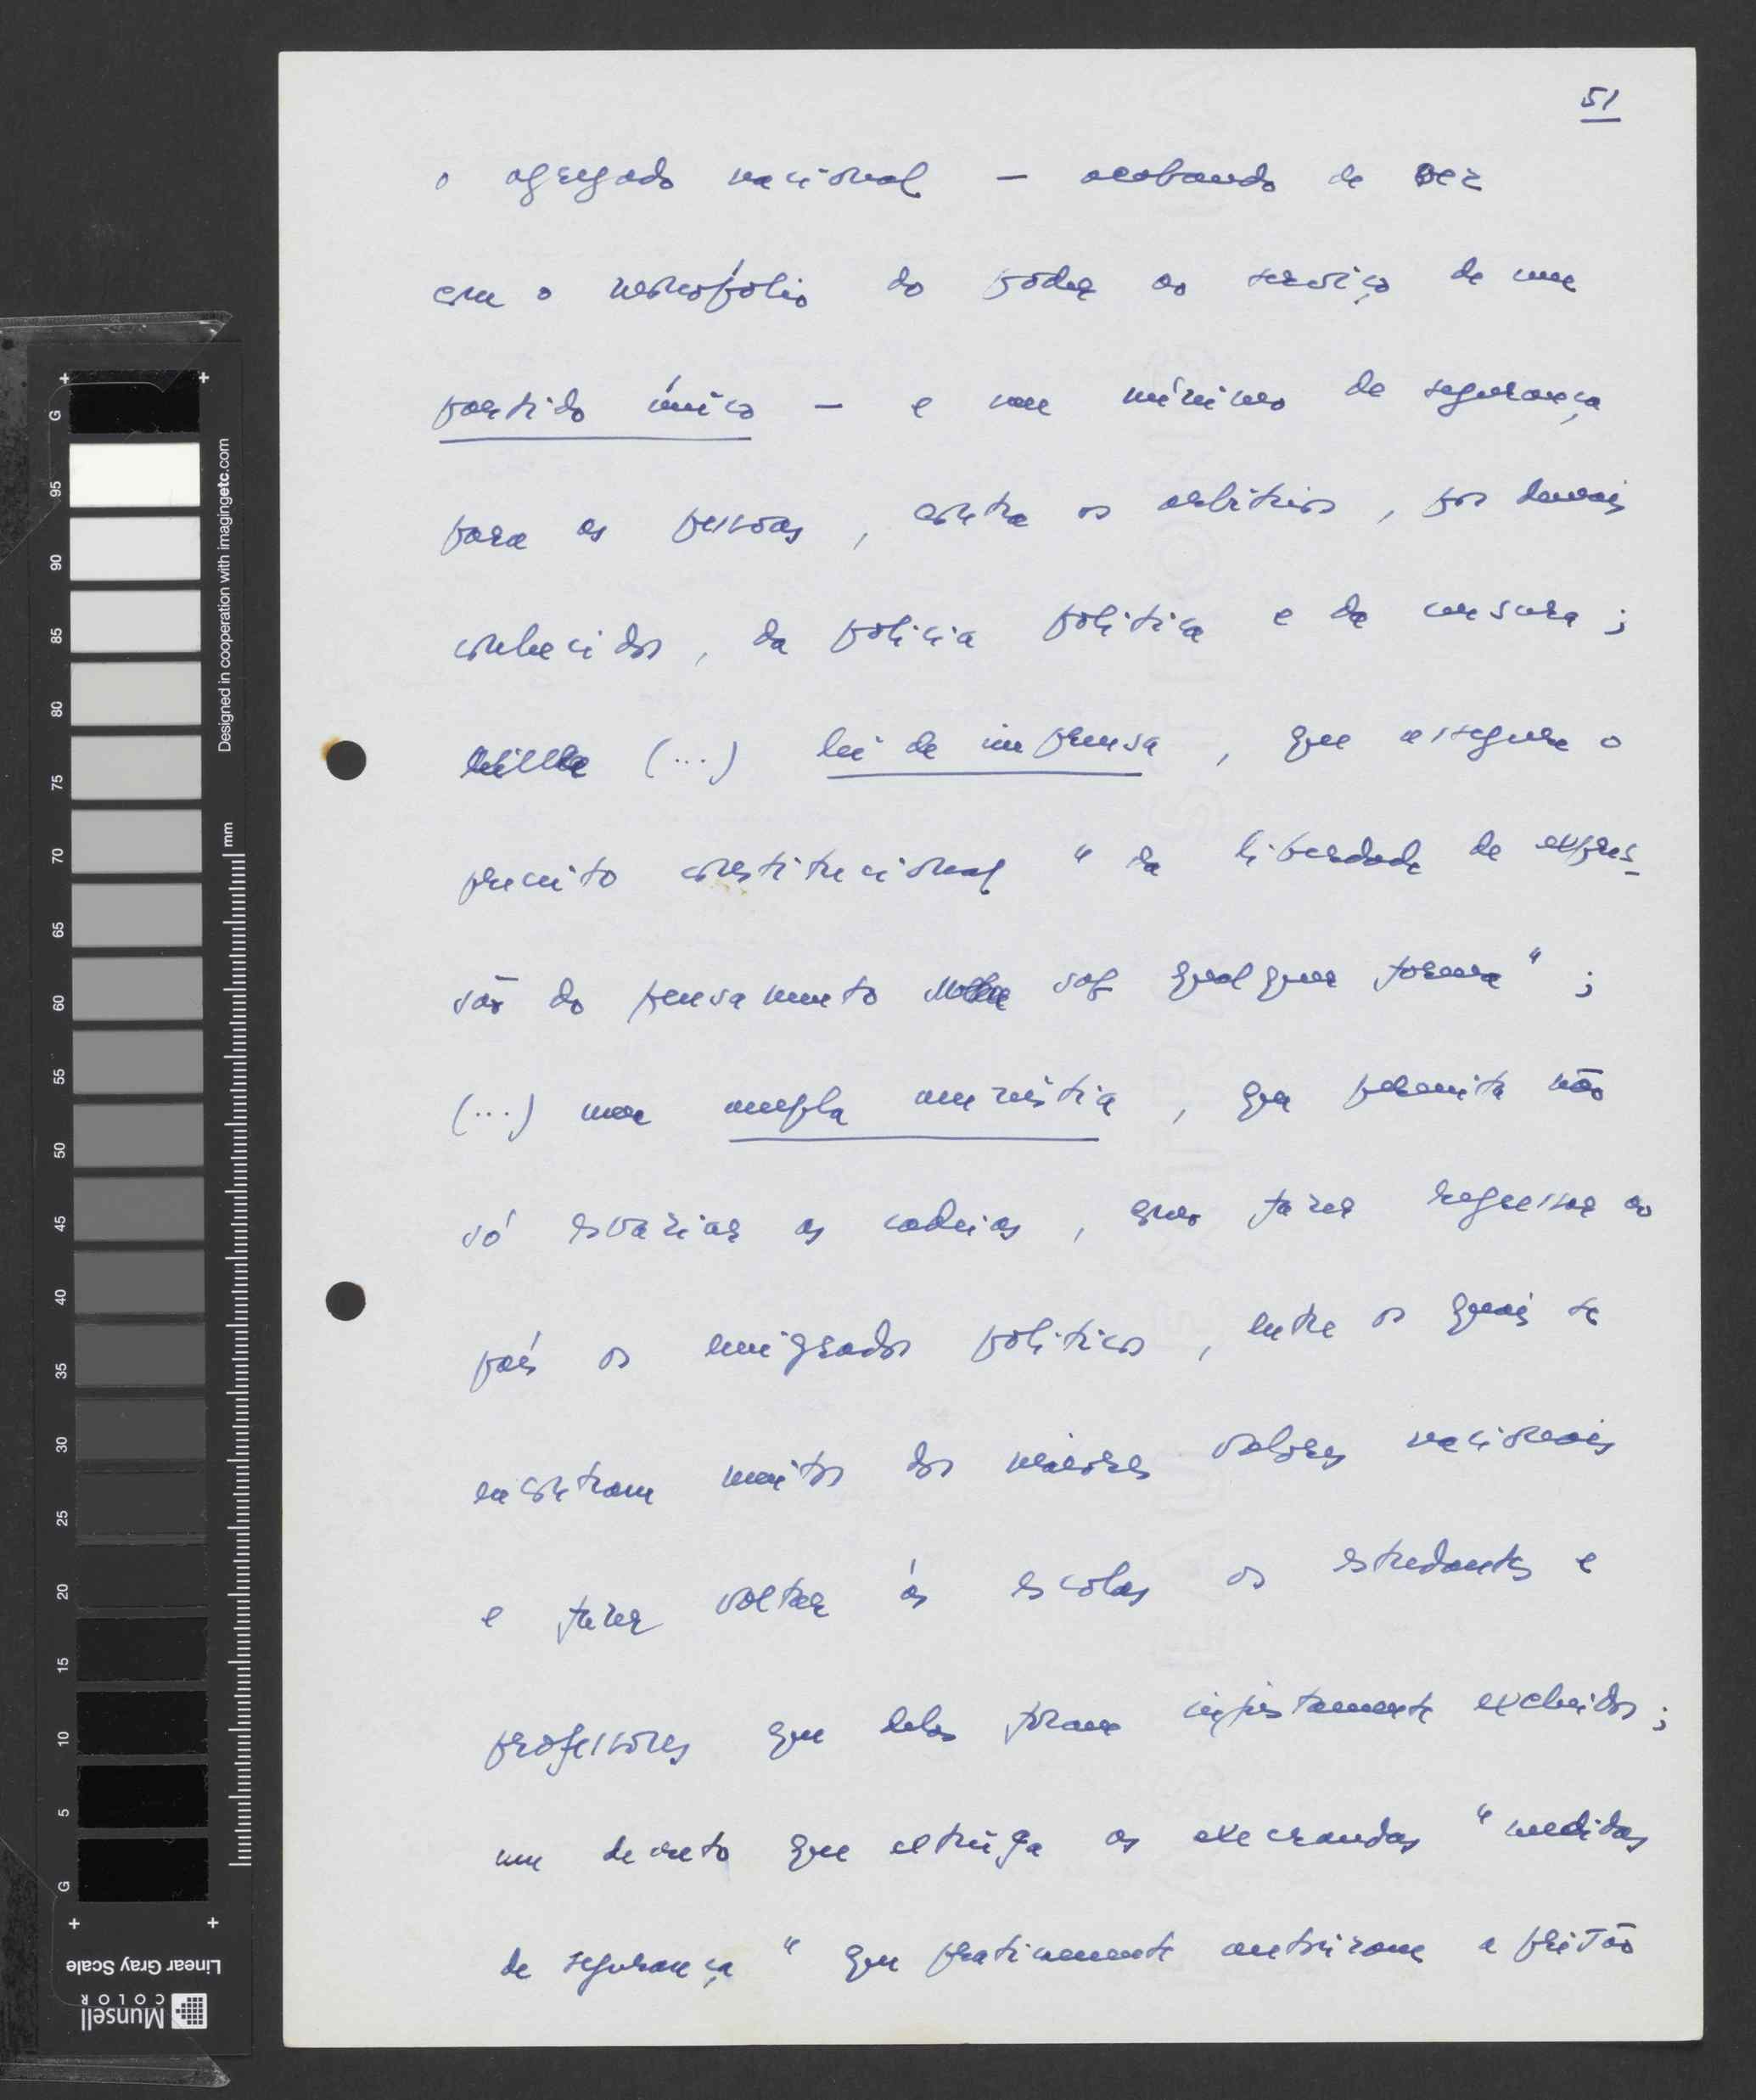 51
o agregado nacional — acabando de vez
com o monopólio do poder ao serviço de um
partido único — e um mínimo de segurança
para as pessoas, contra os arbítrios, por demais
conhecidos, da polícia política e da censura;
(...) lei de imprensa, que assegure o
preceito constitucional "da liberdade de expres-
são do pensamento sob qualquer forma";
(...) uma ampla amnistia, que permita não
só esvaziar as cadeias, como fazer regressar ao
país os emigrados políticos, entre os quais se
encontram muitos dos maiores valores nacionais
e fazer voltar às escolas os estudantes e
professores que delas foram injustamente excluídos;
um decreto que extinga as execrandas "medidas
de segurança" que praticamente autorizam a prisão
G
95
90
85
80
75
70
65
60
55
50
45
40
35
30
25
20
15
10
5
G
Designed in cooperation with imagingetc.com
mm
Linear Gray Scale
Munsell
COLOR